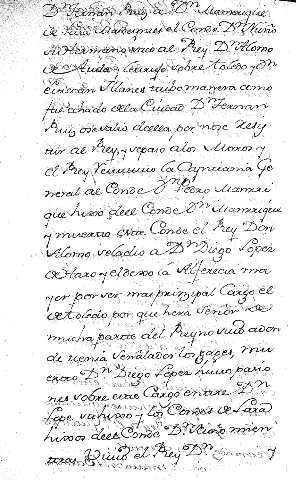 Dn Fernan Ruiz a Dn Manrrique
de Lara Madrugo el Conde Dn Nuño
su Hermano, vino al Rey Dn Alonso
de Avila y trujoso sobre Toledo, y Dn
Estevan Yllanes tubo manera como
fue echado de la Ciudad Dn Fernan
Ruiz os salio de ella, por no Resys
tir al Rey, y separo a los Moros, y
el Rey la Capitania Ge
neral al Conde Dn Pedro Manrri
que hixo de el Conde Dn Manrrique
y muerto este Conde el Rey Don
Alonso se la dio a Dn Diego Lopez
de Haro, y el dexo la Alferecia ma
yor por ser mas principal Cargo el
de Toledo por que hera Señor de
mucha parte del Reyno su
de tenia los gajes, mu
erto Dn Diego Lopez huvo pasio
nes sobre este Cargo entre Dn
Lope su hixo y los Condes de Lara
hixos de el Conde Dn Nuño mien
tras vivio el Rey Dn